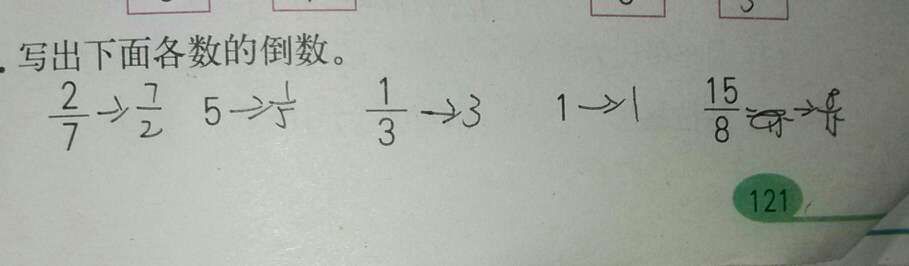 写出下面各数的倒数。
2/7→7/2 5→1/5 1/3→3 1→1 15/8→8/15
121